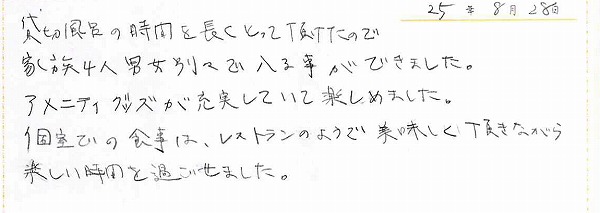 25年8月28日
貸切風呂の時間を長くとって頂けたので
家族4人男女別々で入る事ができました。
アメニティグッズが充実していて楽しめました。
個室での食事は、レストランのようで美味しく頂きながら
楽しい時間を過ごせました。